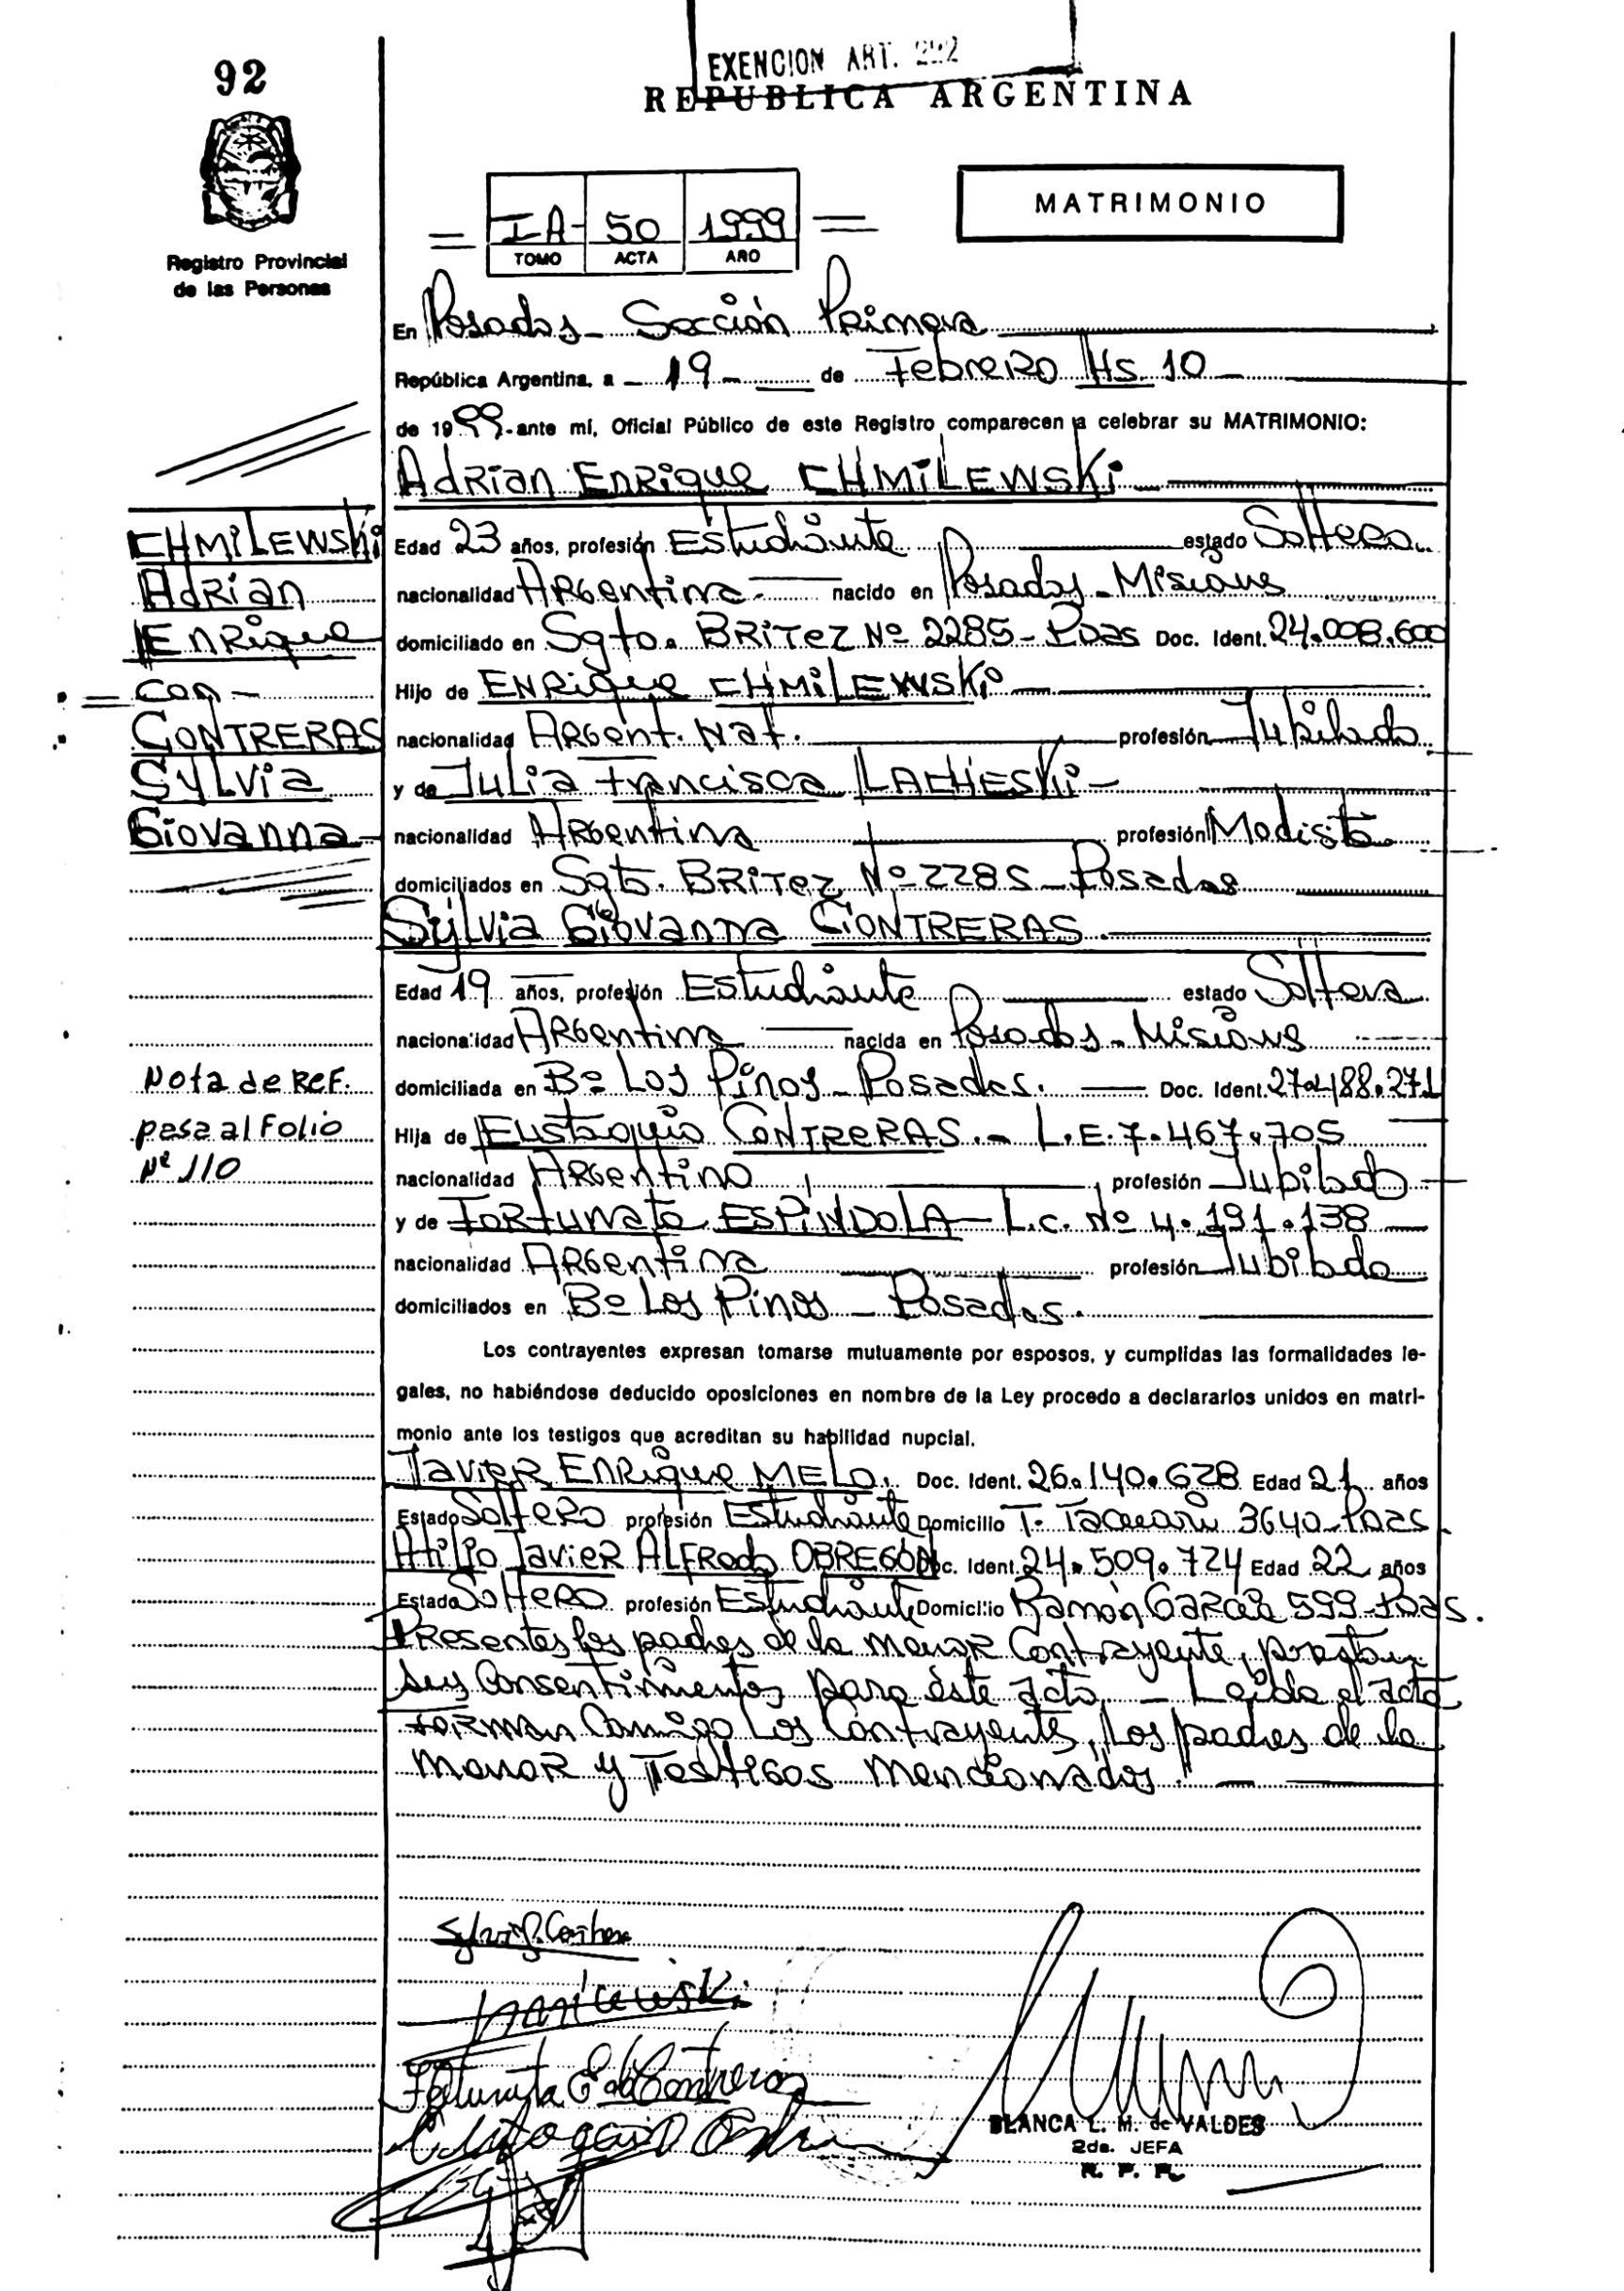 EXENCION ART. 292
92
REPUBLICA ARGENTINA
IA- 50 1999
TOMO ACTA AÑO
MATRIMONIO
Registro Provincial
de las Personas
En Posadas - Sección Primera
República Argentina, a - 19 - de Febrero Hs. 10
de 1999- ante mí, Oficial Público de este Registro comparecen a celebrar su MATRIMONIO:
Adrian Enrique CHMILEWSKI
CHMILEWSKI
Adrian
Enrique
= con -
CONTRERAS
Sylvia
Giovanna
Edad 23 años, profesión Estudiante estado Soltero
nacionalidad Argentina nacido en Posadas - Misiones
domiciliado en Sgto. BRITEZ Nº 2285 - Pdas Doc. Ident. 24.008.600
Hijo de Enrique CHMILEWSKI
nacionalidad Argent. Nat. profesión Jubilado
y de Julia Francisca LACHESKI -
nacionalidad Argentina profesión Modista
domiciliados en Sgto. BRITEZ Nº 2285 - Posadas
Sylvia Giovanna CONTRERAS.
Edad 19 años, profesión Estudiante estado Soltera
nacionalidad Argentina nacida en Posadas - Misiones
domiciliada en Bº Los Pinos - Posadas. Doc. Ident. 27.488.271
Nota de Ref.
pasa al Folio
Nº 110
Hija de Eustaquio CONTRERAS. - L.E. 7.467.705
nacionalidad Argentino profesión Jubilado
y de Fortunata ESPINDOLA - L.C. Nº 4.191.138
nacionalidad Argentina profesión Jubilada
domiciliados en Bº Los Pinos - Posadas.
Los contrayentes expresan tomarse mutuamente por esposos, y cumplidas las formalidades le-
gales, no habiéndose deducido oposiciones en nombre de la Ley procedo a declararlos unidos en matri-
monio ante los testigos que acreditan su habilidad nupcial.
Javier Enrique MELO. Doc. Ident. 26.140.628 Edad 21 años
Estado Soltero profesión Estudiante Domicilio T. Tacuari 3640 - Pdas
Atilio Javier ALFREDO OBREGON Doc. Ident. 24.509.724 Edad 22 años
Estado Soltero profesión Estudiante Domicilio Ramón García 599 - Pdas.
Presentes los padres de la menor Contrayente, prestan
sus consentimientos para éste acto. - Leída el acta
forman Conmigo Los Contrayentes, Los padres de la
menor y Testigos mencionados. -
Fortunata E. de Contreras
BLANCA L. M. de VALDES
2da. JEFA
R. P. P.